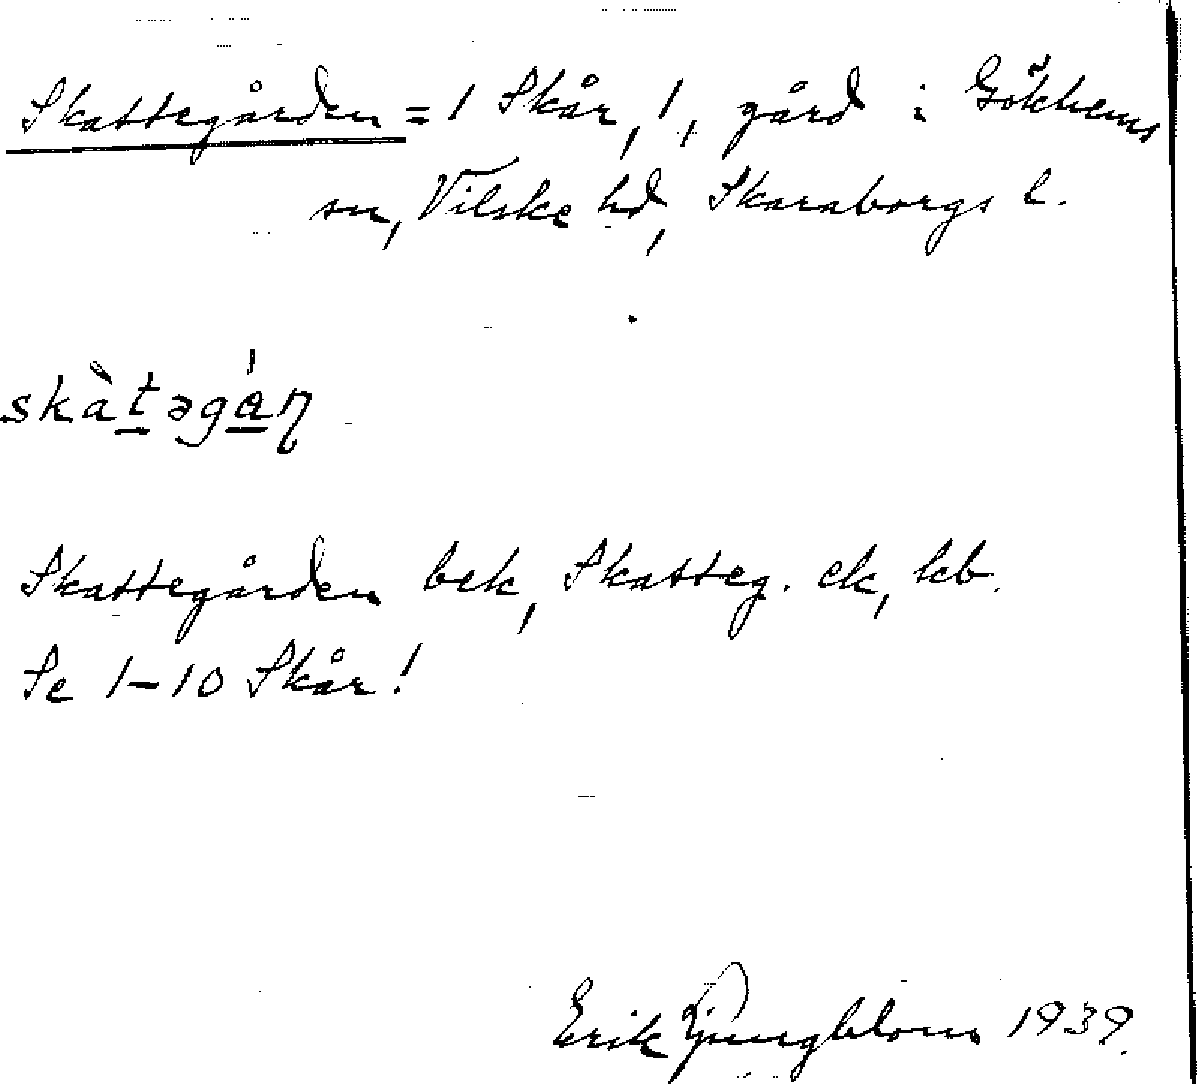 Skattegården = 1 Skår, 1, gård i Gökhems
sn, Vilske hd, Skaraborgs l.
skàt̠əgá̠ɳ
Skattegården bek, Skatteg. ek, kb.
Se 1-10 Skår!
Erik Ljungblom 1939.